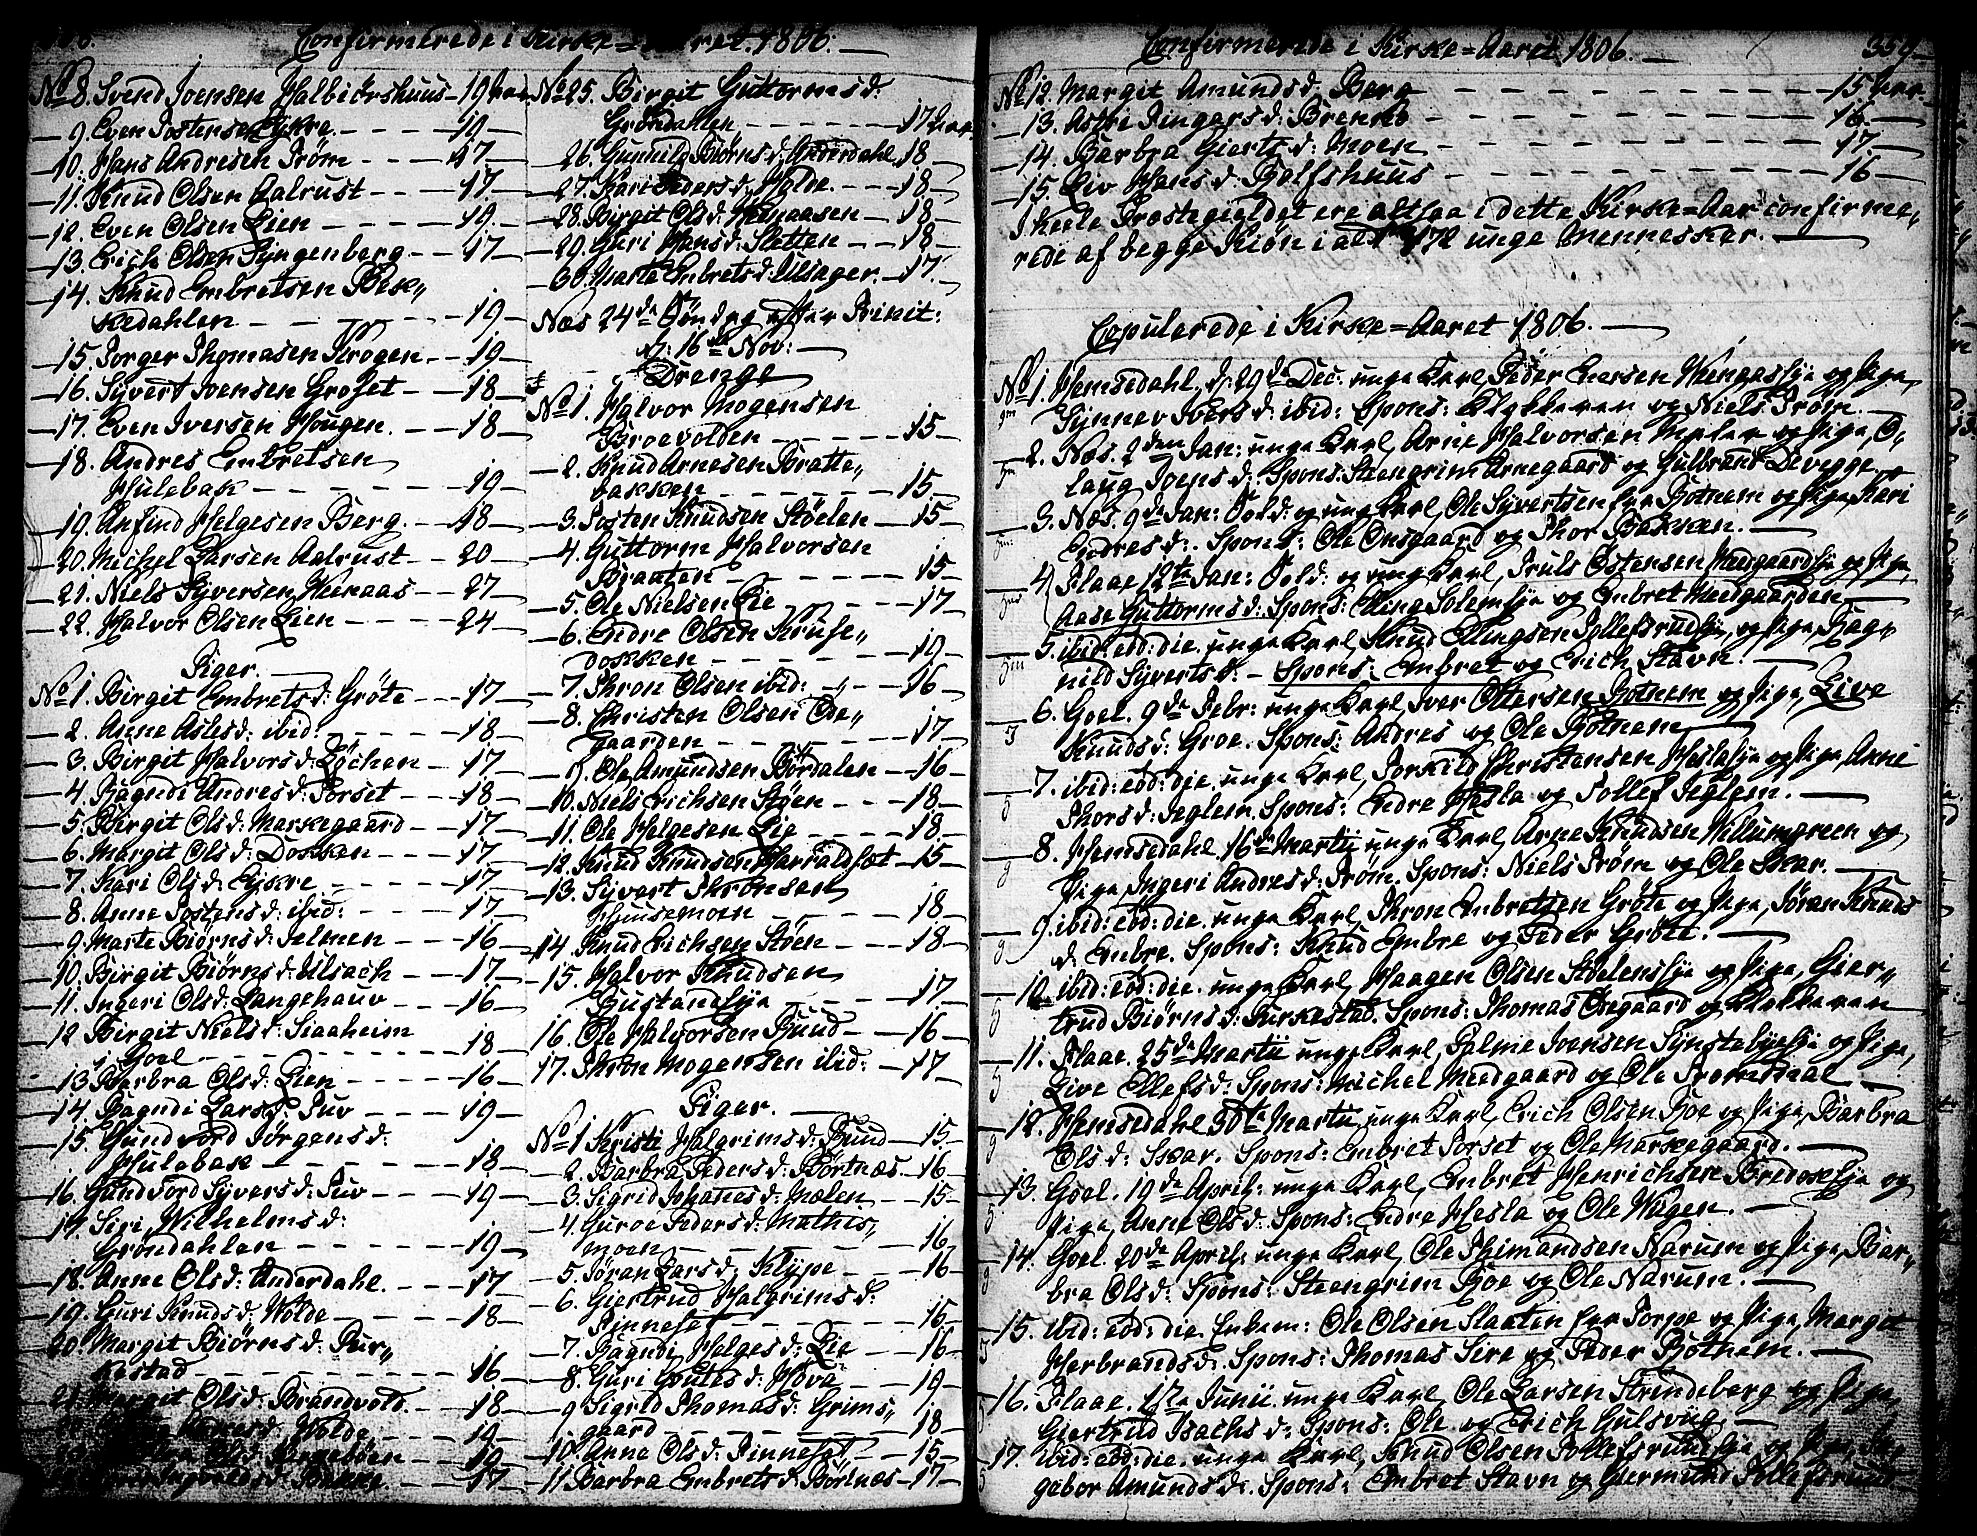 Confirmerede i Kirke=Aaret 1806.
No 8. Svend Joensen Halbiörshuus 19 Aar
9. Even Tostensen Eykre 19
10. Hans Andresen Tröm 17
11. Knud Olsen Aalrust 17
12. Even Olsen Lien 19
13. Erich Olsen Tyngenberg 17
14. Knud Embretsen Bek„
kedahlen 19
15. Torger Thomasen Krogen 19
16. Syvert Joensen Groset 18
17. Even Iversen Hougen 18
18. Andres Embretsen
Hulebak 19
19. Anfind Helgesen Berg 18
20. Michel Larsen Aalrust 20
21. Niels Syversen Weenaas 27
22. Halvor Olsen Lien 24
Piger.
No 1. Birgit Embretsd: Gröte 17
2. Anne Aslesd: ibid: 18
3. Birgit Halvorsd: Löchen 17
4. Ragndi Andresd: Torset 18
5. Birgit Olsd: Markegaard 17
6. Margit Olsd: Dokken 17
7. Kari Olsd: Eykre 17
8. Anne Tostensd: ibid: 17
9. Marte Biörnsd: Jelmen 16
10. Birgit Biörnsd: Ulsach 17
11. Ingeri Olsd: Langehauv 16
12 Birgit Nielsd: Siaaheim
i Goel 18
13 Barbra Olsd: Lien 16
14. Ragndi Larsd: Tuv 19
15. Gundvord Jörgensd:
Hulebak 18
16. Gundvord Syversd: Tuv 19
17. Siri Wilhelmsd:
Gröndahlen 19
18. Anne Olsd: Anderdahl 17
19. Guri Knudsd: Wolde 18
20. Margit Biörnsd: Tur„
kestad 16
21. Margit Olsd: Brandvold 18
Wolde 19
Olsd: 19
17
No 25. Birgit Guttormsd:
Gröndahlen 17 Aar
26. Gunnild Biörnsd: Anderdahl 18
27. Kari Pedersd: Holde 18
28. Birgit Olsd: Weenaasen 18
29. Guri Hansd: Sletten 18
30. Marte Embretsd: Ulsager 17.
Næs 24de Söndag efter Trinit:
d: 16de Nov:
Drenge
No 1. Halvor Mogensen
Broevolden 15
2. Knud Arnesen Bratte„
bakken 15
3. Tosten Knudsen Stöelen 15
4. Guttorm Halvorsen
Braaten 15
5. Ole Nielsen Lie 17
6. Endre Olsen Kruse„
dokken 19
7. Thron Olsen ibid: 16
8. Christen Olsen Ode„
gaarden 17
9. Ole Amundsen Bördalen 16
10. Niels Erichsen Stöen 18
11. Ole Helgesen Lie 18
12. Knud Knudsen Haraldset 15
13. Syvert Thronsen
Huusemoen 18
14. Knud Erichsen Stöen 18
15. Halvor Knudsen
Gustaneje 17
16. Ole Halvorsen Ruud 16
17. Thron Mogensen ibid: 17
Piger.
No 1 Kristi Halgrimsd: Ruud 15
2. Barbra Pedersd: Börtnæs 16
3. Sigrid Johannesd: Mælen 15
4. Guroe Pedersd: Mathis„
moen 16
5. Jöran Larsd: Klype 16
6. Giertrud Halgrimsd:
Rinneset 15
7. Ragndi Helgesd: Lie 16
8. Guri Goutesd: Hova 19
9 Sigrid Thomasd: Grims„
gaard 18
10. Anne Olsd: Rinneset 15
11 Barbra Embretsd: Börtnæs 17
Confirmerede i Kirke=Aaret 1806. 359
No 12. Margit Amundsd: Berg 15 Aar.
13. Astri Jingersd: Brenno 16
14. Barbra Giertsd: Moen 17
15. Liv Hansd: Rolfshuus 16
I heele Præstegieldet ere altsaa i dette Kirke=Aar confirme„
rede af begge Kiön i alt 172 unge Mennesker.
Copulerede i Kirke=Aaret 1806.
No 1. Hemsedahl. d: 29de Dec: unge Karl, Peder Eversen Weenaaseje og Pige,
Synnev Iversd: ibid: Spons: Klokkeren og Niels Tröm.
2. Næs. 2den Jan: unge Karl, Arne Halvorsen Mælen og Pige, O„
laug Joensd: Spons: Stengrim Arnegaard og Gulbrand Levegge
3. Næs. 9de Jan: Sold: og unge Karl, Ole Syvertsen fra Rotnem og Pige, Kari
Endresd: Spons: Ole Onsgaard og Thor Bakken.
4. Flaae. 12te Jan: Sold: og unge Karl, Truls Ostensen Meedgaardseje og Pige,
Aase Guttormsd: Spons: Elling Solemseje og Embret Meedgaarden
5. ibid: eod: die. unge Karl, Knud Ellingsen Tollefsrudeje, og Pige, Rag„
nild Syvertsd: Spons: Embret og Erich Stavn.
6. Goel. 9de Febr: unge Karl, Iver Ottersen Rotnem og Pige, Live
Knudsd: Groe. Spons: Andres og Ole Rotnem
7. ibid: eod: die. unge Karl, Torkild Christensen Heslaeje og Pige, Anne
Thorsd: Jeglem. Spons: Endre Hesla og Tollef Jeglem.
8. Hemsedahl. 16de Martii unge Karl, Arne Knudsen Willumgreen og
Pige, Ingeri Andresd: Tröm. Spons: Niels Tröm og Ole Skar.
9. ibid: eod: die. unge Karl, Thron Embretsen Gröte og Pige, Jöran Knuds
d. Embre. Spons: Knud Embre og Peder Gröte.
10. ibid: eod: die. unge Karl, Haagen Olsen Stöelenseje og Pige, Gier„
trud Biörnsd: Turkestad. Spons: Thomas Onsgaard og Klokkeren
11. Flaae. 25de Martii unge Karl, Palme Joensen Synstebyeje og Pige,
Live Ellefsd: Spons: Michel Meedgaard og Ole Tromthal
12. Hemsedahl 30te Martii unge Karl, Erich Olsen Roe og Pige, Barbra
Olsd: Skar. Spons: Embret Torset og Ole Markegaard.
13. Goel. 19de April: unge Karl, Embret Henrichsen Bredoseje og
Pige, Anne Olsd: Spons: Endre Hesla og Ole Wagen.
14. Goel. 20de April: unge Karl, Ole Thimandsen Narum og Pige, Bar„
bra Olsd: Spons: Steengrim Roe og Ole Narum.
15. ibid: eod: die. Enkem: Ole Olsen Slaatin fra Torpe og Pige, Margit
Herbrandsd: Spons: Thomas Sire og Peder Rotnem.
16. Flaae. 17de Junii unge Karl, Ole Larsen Strindeberg og Pige,
Giertrud Isachsd: Spons: Ole og Erich Gulsviig.
17. ibid: eod: die. unge Karl, Knud Olsen Tollefsrudeje og Pige, In„
gebor Amundsd: Spons: Embret Stavn og Giermund Tollefsrud